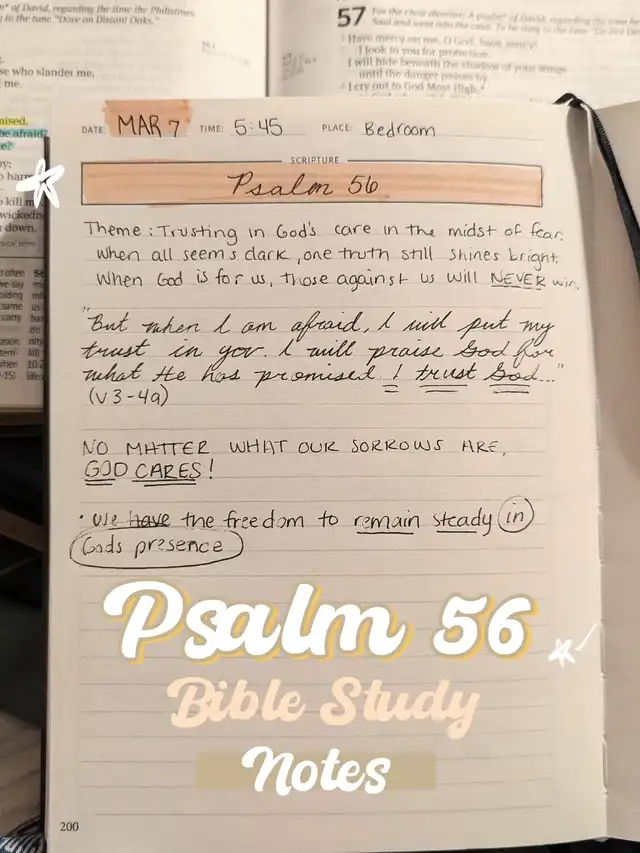 of David, regarding the time the Philistines
to the tune "Dove on Distant Oaks."
57 For the choir director: A psalm* of David, regarding the time he
Saul and went into the cave. To be sung to the tune "Do Not Des
1 Have mercy on me, O God, have mercy!
I look to you for protection.
I will hide beneath the shadow of your wings
until the danger passes by.
2 I cry out to God Most High,*
who slander me,
me.
be afraid?
DATE: MAR 7 TIME: 5:45 PLACE: Bedroom
SCRIPTURE
Psalm 56
Theme: Trusting in God's care in the midst of fear.
When all seems dark, one truth still shines bright.
When God is for us, those against us will NEVER win.
"But when I am afraid, I will put my
trust in you. I will praise God for
what He has promised I trust God..."
(v 3-4a)
NO MATTER WHAT OUR SORROWS ARE,
GOD CARES!
• We have the freedom to remain steady in
Gods presence
Psalm 56
Bible Study
Notes
200